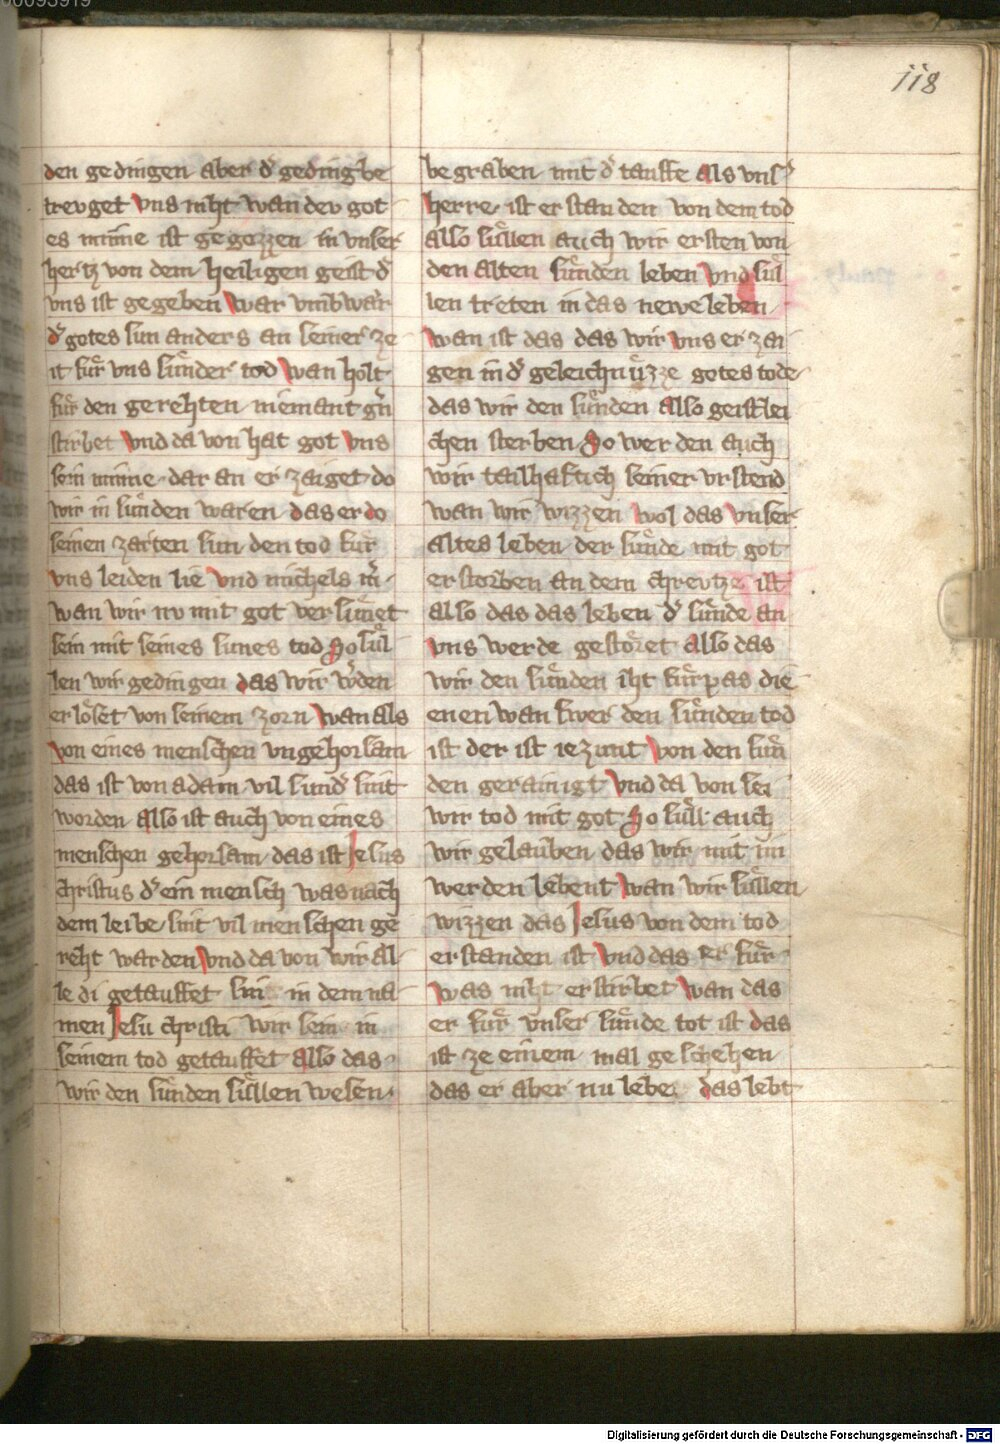 00093919
118
den gedingen aber d̾ geding be
trevget vns niht wan dev got
es minne ist gegozzen in vnser
hertz von dem heiligen geist d̾
vns ist gegeben War vmb war
d̾ gotes sun anders an seiner ze
it fuͤr vns suͤnder tod Wan holt
fuͤr den gerehten niemant g̾n
stirbet Vnd da von hat got Vns
sein minne dar an er zaiget do
wir in suͤnden waren das er do
seinen zarten sun den tod fuͤr
vns leiden lie Vnd michels m̄
wan wir nv mit got versuͤnet
sein mit seines sunes tod So suͤl
len wir gedingen das wir w̾den
erloͤset von seinem zorn Wan als
von eines menschen vngehorsam
das ist von adam vil sund̾ sint
worden Also ist auch von eines
menschen gehorsam das ist Jesus
christus d̾ ein mensch was nach
dem leibe sint vil menschen ge
reht warden Vnd da von wir al
le di getauffet sin in dem na
men Jesu christi wir sein in
seinem tod getauffet also das
wir den suͤnden suͤllen wesen
begraben mit d̾ tauffe Als vns̾
herre ist erstanden von dem tod
also suͤllen auch wir ersten von
den alten suͤnden leben Vnd suͤl
len treten in das newe leben
Wan ist das das wir vns erzai
gen in d̾ geleichnuͤzze gotes tode
das wir den suͤnden also geistlei
chen sterben So werden auch
wir tailhaftich seiner vrstend
wan wir wizzen wol das vnser
altes leben der suͤnde mit got
erstorben an dem chrevtze ist
also das das leben d̾ suͤnde an
vns werde gestoͤret Also das
wir den suͤnden iht fuͤrpas die
enen wan swer den suͤnden tod
ist der ist iezunt von den suͤn
den gerainigt Vnd da von sei
wir tod mit got So suͤll auch
wir gelauben das wir mit im
werden lebent Wan wir suͤllen
wizzen das Jesus von dem tod
erstanden ist Vnd das Er fuͤr
was niht erstirbet Wan das
er fuͤr vnser suͤnde tot ist das
ist ze einem mal geschehen
das er aber nu lebe das lebt
Digitalisierung gefördert durch die Deutsche Forschungsgemeinschaft - DFG